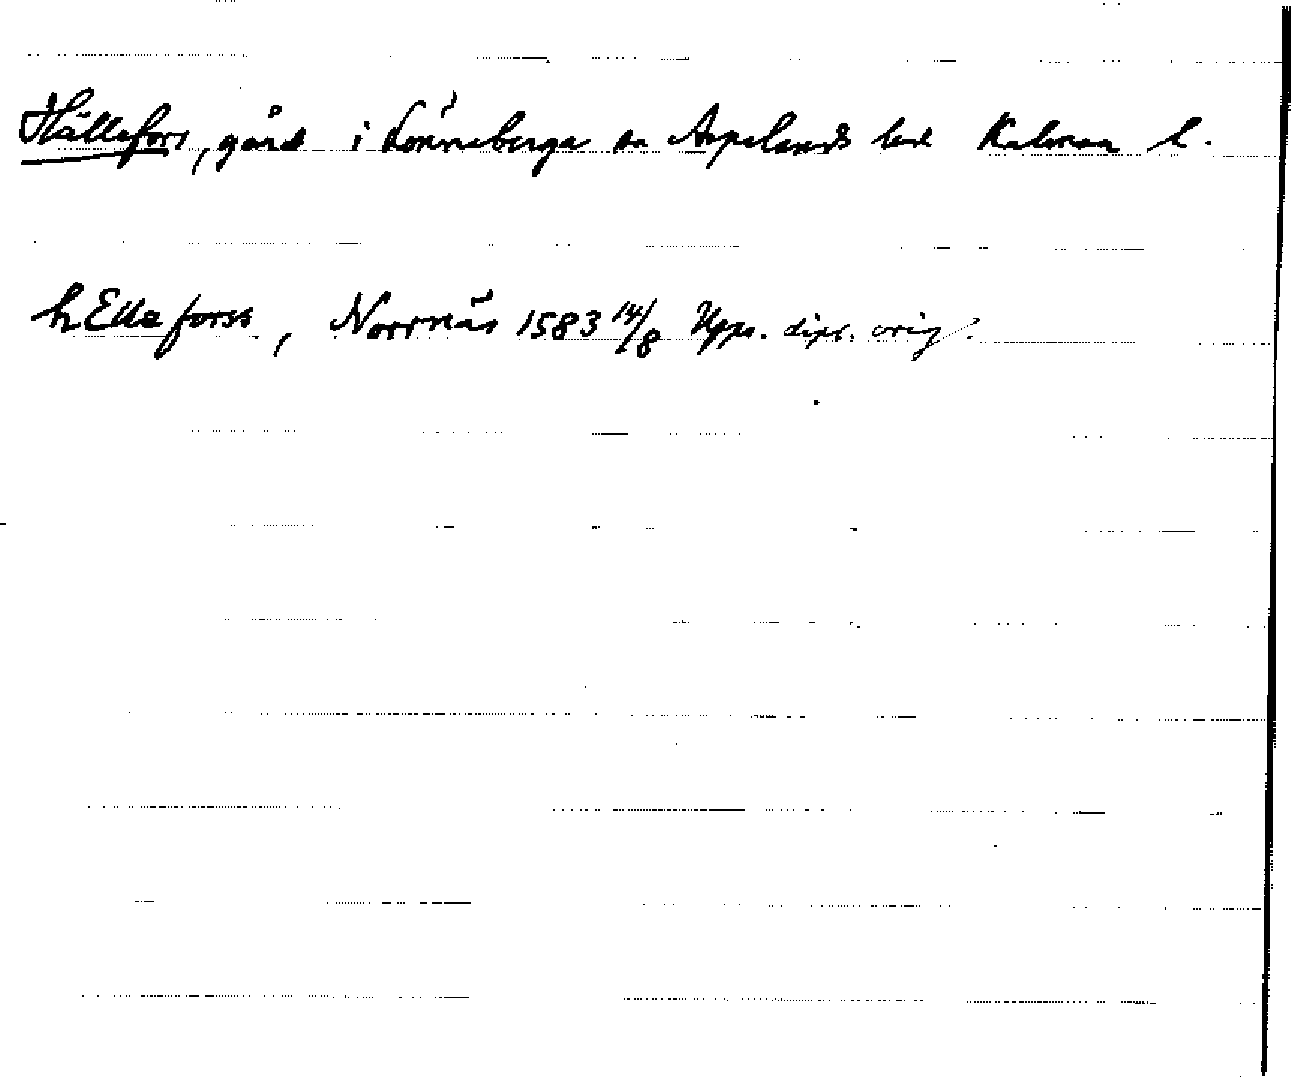 Hällefors, gård i Lönneberga sn Aspelands hd Kalmar l.
hEllaforss, Norrnäs 1583 14/8 Upps. dipl. orig.